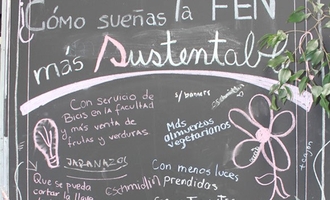 Cómo sueñas la FEN
más Sustentabl
Con servicio de
Bicis en la facultad
y más venta de
frutas y verduras
s/banners
Más
almuerzos
vegetarianos
Con menos luces
prendidas
Que se pueda
cortar la llave